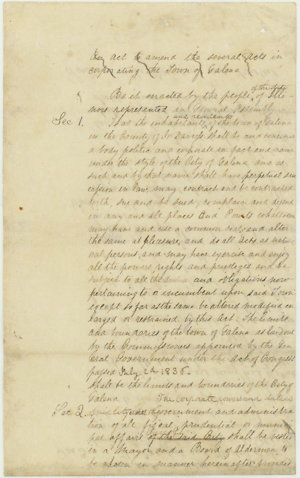 An act to amend the several acts in
corporating the Town of Galena
Be it enacted by the people of the State of Illi
nois represented in General Assembly
and residents
Sec 1. That the inhabitants of the town of Galena
in the County of Jo Daviess shall be and remain
a body politic and corporate in fact and name
under the style of the City of Galena and as
such and by that name shall have perpetual suc
cession in law may contract and be contracted
with sue and be sued, complain and defend
in any and all places and Courts whatsoever
may have and use a common seal and alter
the same at pleasure, and do all acts as natu
ral persons, and may have exercise and enjoy
all the powers rights and privileges and be
subject to all the duties and obligations now
pertaining to or incumbent upon said Town
except so far as the same be altered modified en
larged or restrained by this Act. The limits
and boundaries of the town of Galena as laid out
by the Commissioners appointed by the Gen
eral Government under the Act of Congress
passed July 2d 1836.
shall be the limits and boundaries of the City of
Galena The corporate
Sec 2 government and administra
tion of all fiscal prudential or munici
pal affairs of the said City shall be vested
in a Mayor and a Board of Aldermen to
be chosen in manner herein after provided